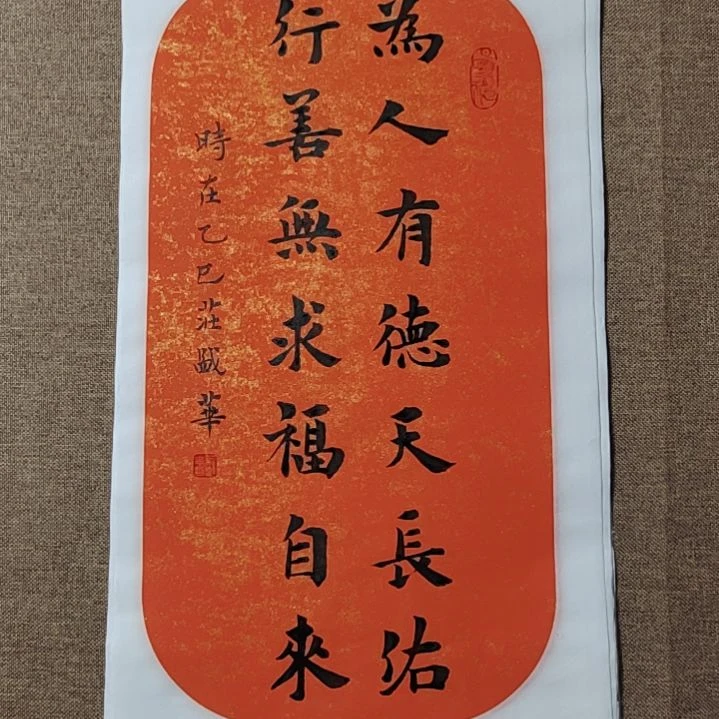 為人有德天長佑
行善無求福自來
時在乙巳莊盛華